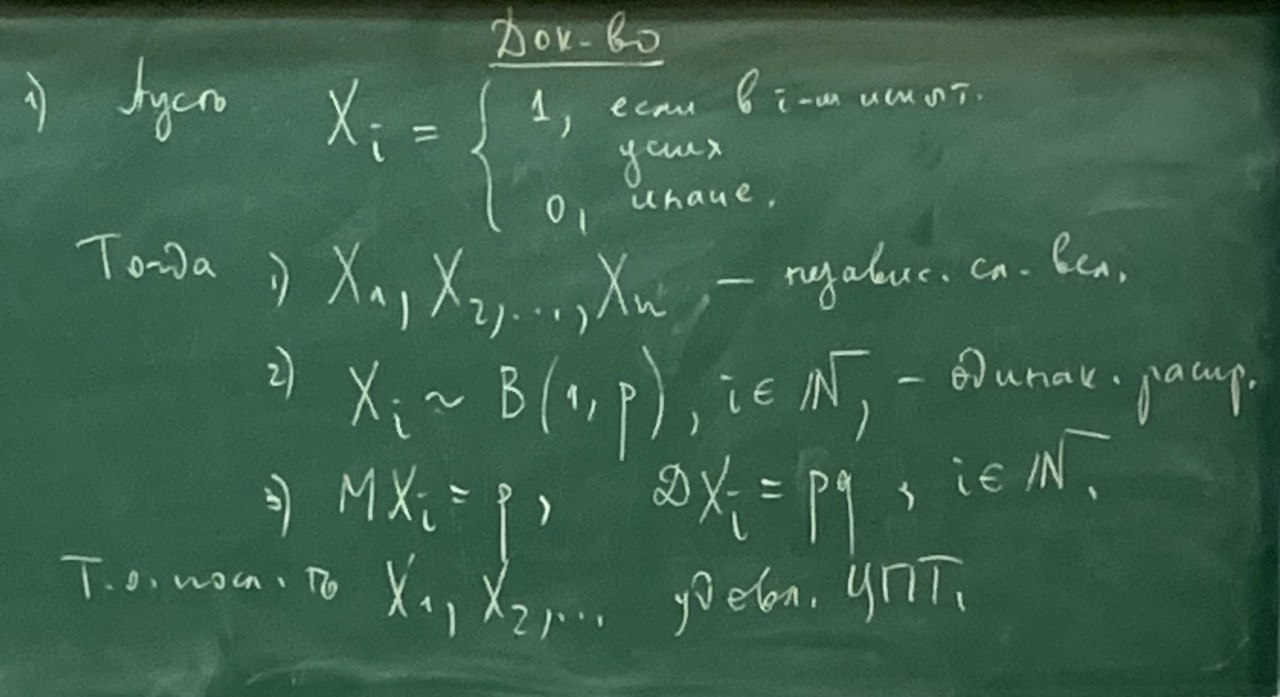 Док-во
1) Пусть X_i = { 1, если в i-м испыт.
успех
0, иначе.
Тогда 1) X_1, X_2, ..., X_n, – независ. сл. вел.
2) X_i ~ B(1, p), i ∈ ℕ, – одинак. распр.
3) MX_i = p, DX_i = pq, i ∈ ℕ.
Т.о. посл. ть X_1, X_2, ... удовл. ЦПТ.